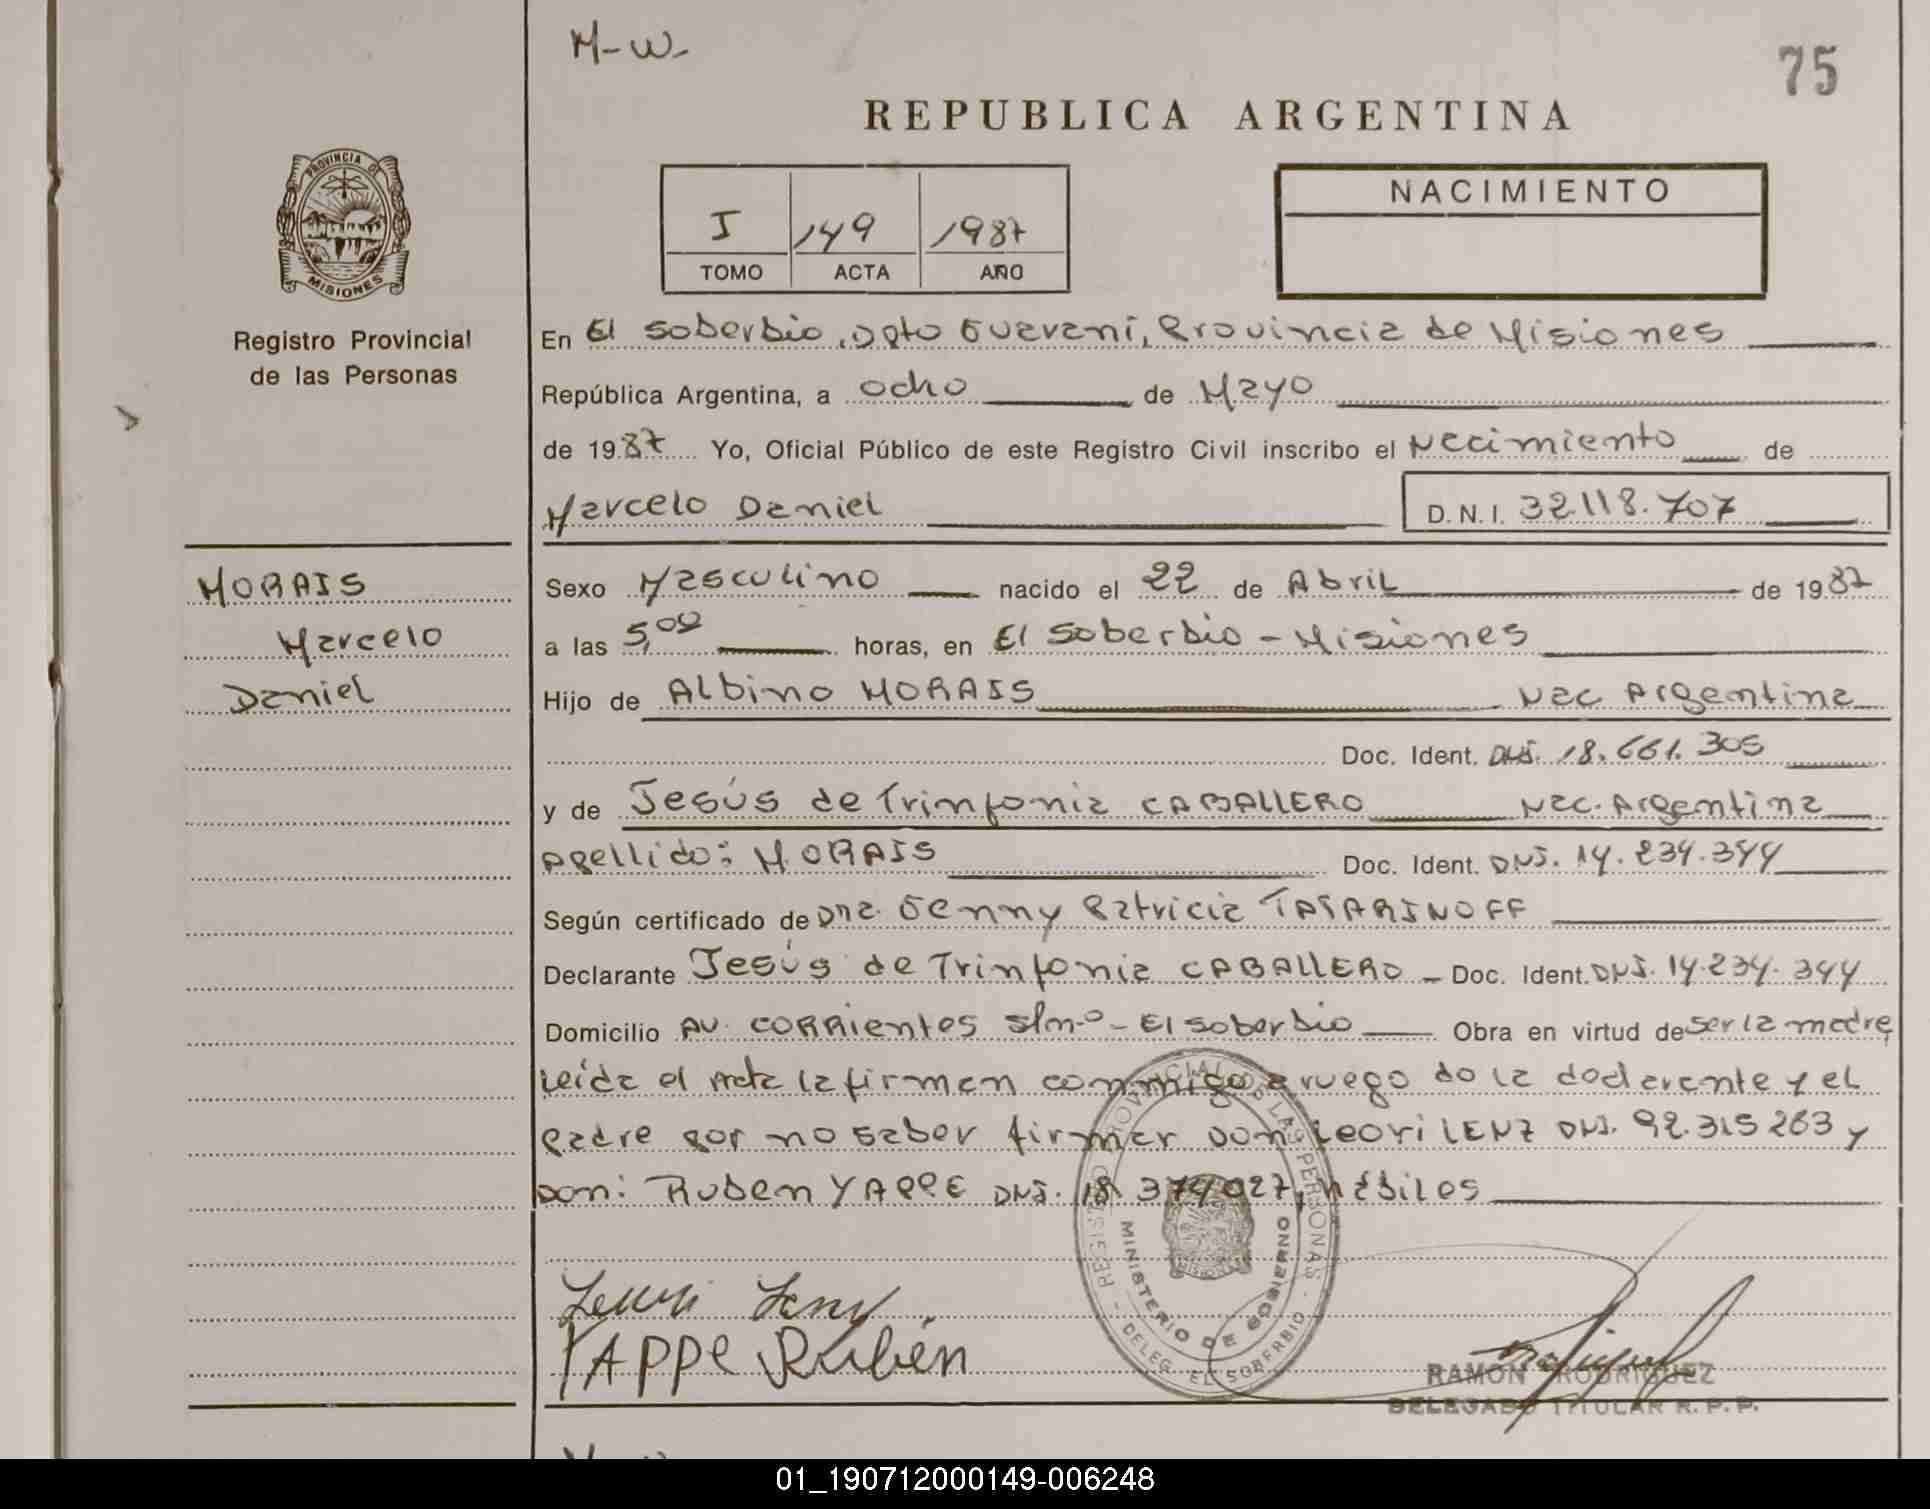 M-W-
75
REPUBLICA ARGENTINA
PROVINCIA DE
MISIONES
Registro Provincial
de las Personas
I 149 1987
TOMO ACTA AÑO
NACIMIENTO
En El Soberbio, Dpto Guaraní, Provincia de Misiones
República Argentina, a ocho de Mayo
de 1987 Yo, Oficial Público de este Registro Civil inscribo el Nacimiento de
Marcelo Daniel D.N.I. 32.118.707
MORAIS
Marcelo
Daniel
Sexo Masculino nacido el 22 de Abril de 1987
a las 5,00 horas, en El Soberbio - Misiones
Hijo de Albino MORAIS Nac Argentina
Doc. Ident. DNI. 18.661.305
y de Jesús de Trinfonia CABALLERO Nac. Argentina
Apellido: MORAIS Doc. Ident. DNI. 14.234.344
Según certificado de Dra. Genny Patricia TATARINOFF
Declarante Jesús de Trinfonia CABALLERO - Doc. Ident. DNI. 14.234.344
Domicilio AV. CORRIENTES s/nº - El Soberbio Obra en virtud de ser la madre,
Leída el Acta la firman conmigo a ruego de la declarante y el
padre por no saber firmar Don Leori LENZ DNI. 92.315263 y
Don: Ruben YAPPE DNI. 18.374027, hábiles
REGISTRO PROVINCIAL DE LAS PERSONAS
MINISTERIO DE GOBIERNO
DELEG. EL SOBERBIO
MISIONES
YAPPE Rubén
RAMON RODRIGUEZ
DELEGADO TITULAR R.P.P.
01_190712000149-006248